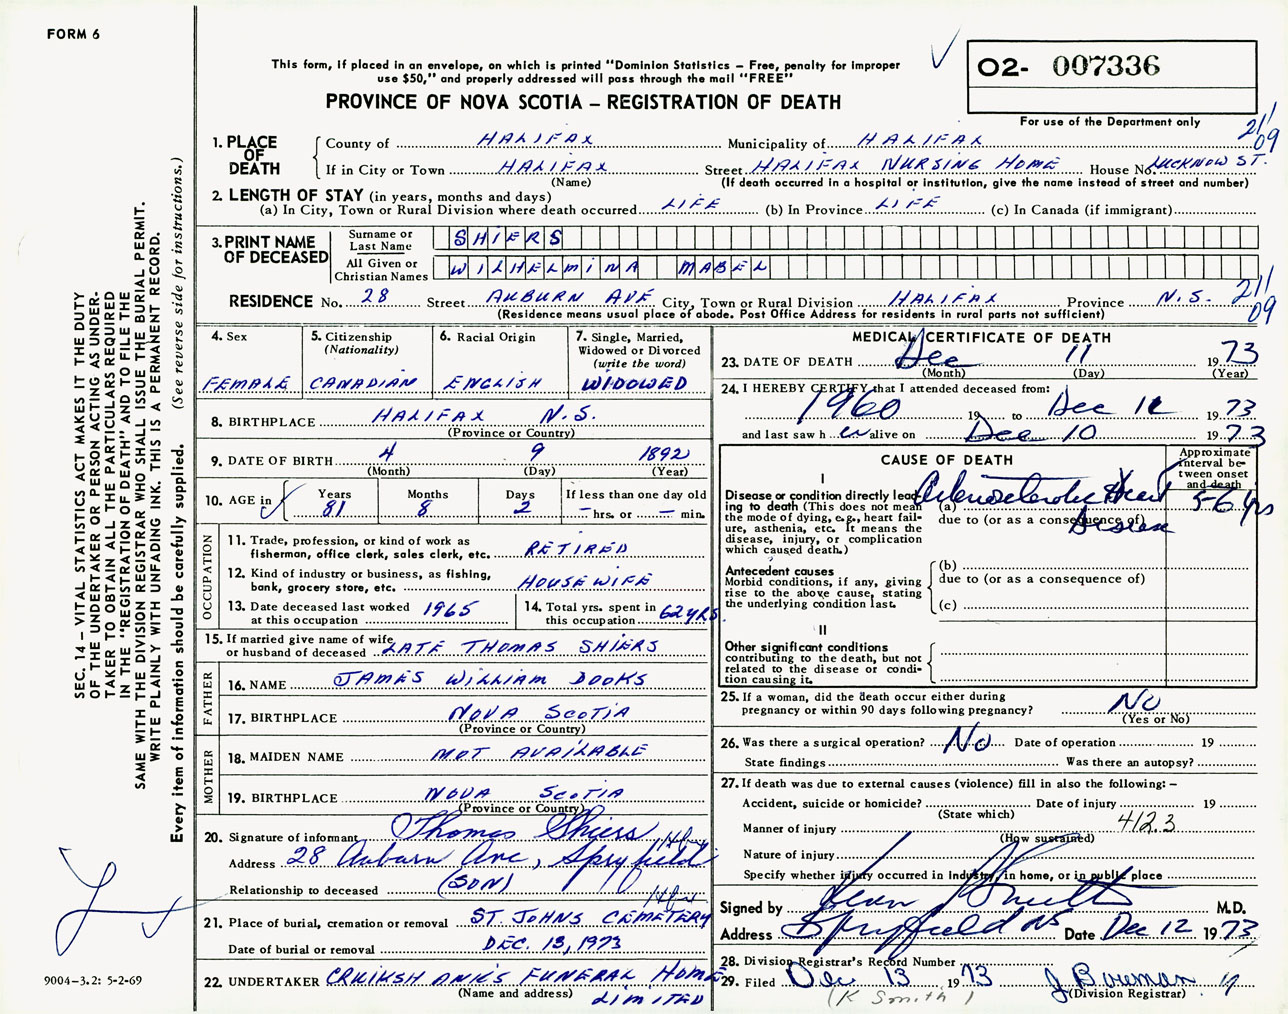 FORM 6
This form, if placed in an envelope, on which is printed "Dominion Statistics – Free, penalty for improper
use $50," and properly addressed will pass through the mail "FREE"
PROVINCE OF NOVA SCOTIA – REGISTRATION OF DEATH
O2- 007336
For use of the Department only
211
09
1. PLACE OF DEATH
County of HALIFAX Municipality of HALIFAX
If in City or Town HALIFAX Street HALIFAX NURSING HOME House No. LUCKNOW ST.
(Name) (If death occurred in a hospital or institution, give the name instead of street and number)
2. LENGTH OF STAY (in years, months and days)
(a) In City, Town or Rural Division where death occurred LIFE (b) In Province LIFE (c) In Canada (if immigrant)
3. PRINT NAME OF DECEASED
Surname or Last Name SHIERS
All Given or Christian Names WILHELMINA MABEL
211
09
RESIDENCE No. 28 Street AUBURN AVE City, Town or Rural Division HALIFAX Province N.S.
(Residence means usual place of abode. Post Office Address for residents in rural parts not sufficient)
4. Sex
FEMALE
5. Citizenship
(Nationality)
CANADIAN
6. Racial Origin
ENGLISH
7. Single, Married,
Widowed or Divorced
(write the word)
WIDOWED
8. BIRTHPLACE HALIFAX N.S.
(Province or Country)
9. DATE OF BIRTH 4 9 1892
(Month) (Day) (Year)
10. AGE in
Years Months Days If less than one day old
81 8 2 – hrs. or — min.
OCCUPATION
11. Trade, profession, or kind of work as
fisherman, office clerk, sales clerk, etc. RETIRED
12. Kind of industry or business, as fishing,
bank, grocery store, etc. HOUSEWIFE
13. Date deceased last worked
at this occupation 1965
14. Total yrs. spent in
this occupation 62 YRS.
15. If married give name of wife
or husband of deceased LATE THOMAS SHIERS
FATHER
16. NAME JAMES WILLIAM DOOKS
17. BIRTHPLACE NOVA SCOTIA
(Province or Country)
MOTHER
18. MAIDEN NAME NOT AVAILABLE
19. BIRTHPLACE NOVA SCOTIA
(Province or Country)
20. Signature of informant Thomas Shiers
Address 28 Auburn Ave, Spryfield
Relationship to deceased (SON)
21. Place of burial, cremation or removal ST. JOHNS CEMETERY
Date of burial or removal DEC. 13, 1973
22. UNDERTAKER CRUIKSHANK'S FUNERAL HOME
(Name and address) LIMITED
MEDICAL CERTIFICATE OF DEATH
23. DATE OF DEATH Dec 11 1973
(Month) (Day) (Year)
24. I HEREBY CERTIFY that I attended deceased from:
1960 19 to Dec 11 1973
and last saw h er alive on Dec 10 1973
CAUSE OF DEATH
Approximate
interval be-
tween onset
and death
I
Disease or condition directly lead-
ing to death (This does not mean
the mode of dying, e.g., heart fail-
ure, asthenia, etc. It means the
disease, injury, or complication
which caused death.)
(a) Arteriosclerotic Heart
Disease
5-6 yrs
due to (or as a consequence of)
Antecedent causes
Morbid conditions, if any, giving
rise to the above cause, stating
the underlying condition last.
(b)
due to (or as a consequence of)
(c)
II
Other significant conditions
contributing to the death, but not
related to the disease or condi-
tion causing it.
25. If a woman, did the death occur either during
pregnancy or within 90 days following pregnancy? No
(Yes or No)
26. Was there a surgical operation? No Date of operation 19
State findings Was there an autopsy?
27. If death was due to external causes (violence) fill in also the following: –
Accident, suicide or homicide? Date of injury 19
(State which)
Manner of injury 412.3
(How sustained)
Nature of injury
Specify whether injury occurred in Industry, in home, or in public place
Signed by Smith M.D.
Address Spryfield NS Date Dec 12 1973
28. Division Registrar's Record Number
29. Filed Dec 13 1973 J. Bowman
(K Smith) (Division Registrar)
SEC. 14 – VITAL STATISTICS ACT MAKES IT THE DUTY
OF THE UNDERTAKER OR PERSON ACTING AS UNDER-
TAKER TO OBTAIN ALL THE PARTICULARS REQUIRED
IN THE "REGISTRATION OF DEATH" AND TO FILE THE
SAME WITH THE DIVISION REGISTRAR WHO SHALL ISSUE THE BURIAL PERMIT.
WRITE PLAINLY WITH UNFADING INK. THIS IS A PERMANENT RECORD.
Every item of information should be carefully supplied. (See reverse side for instructions.)
9004-3.2: 5-2-69